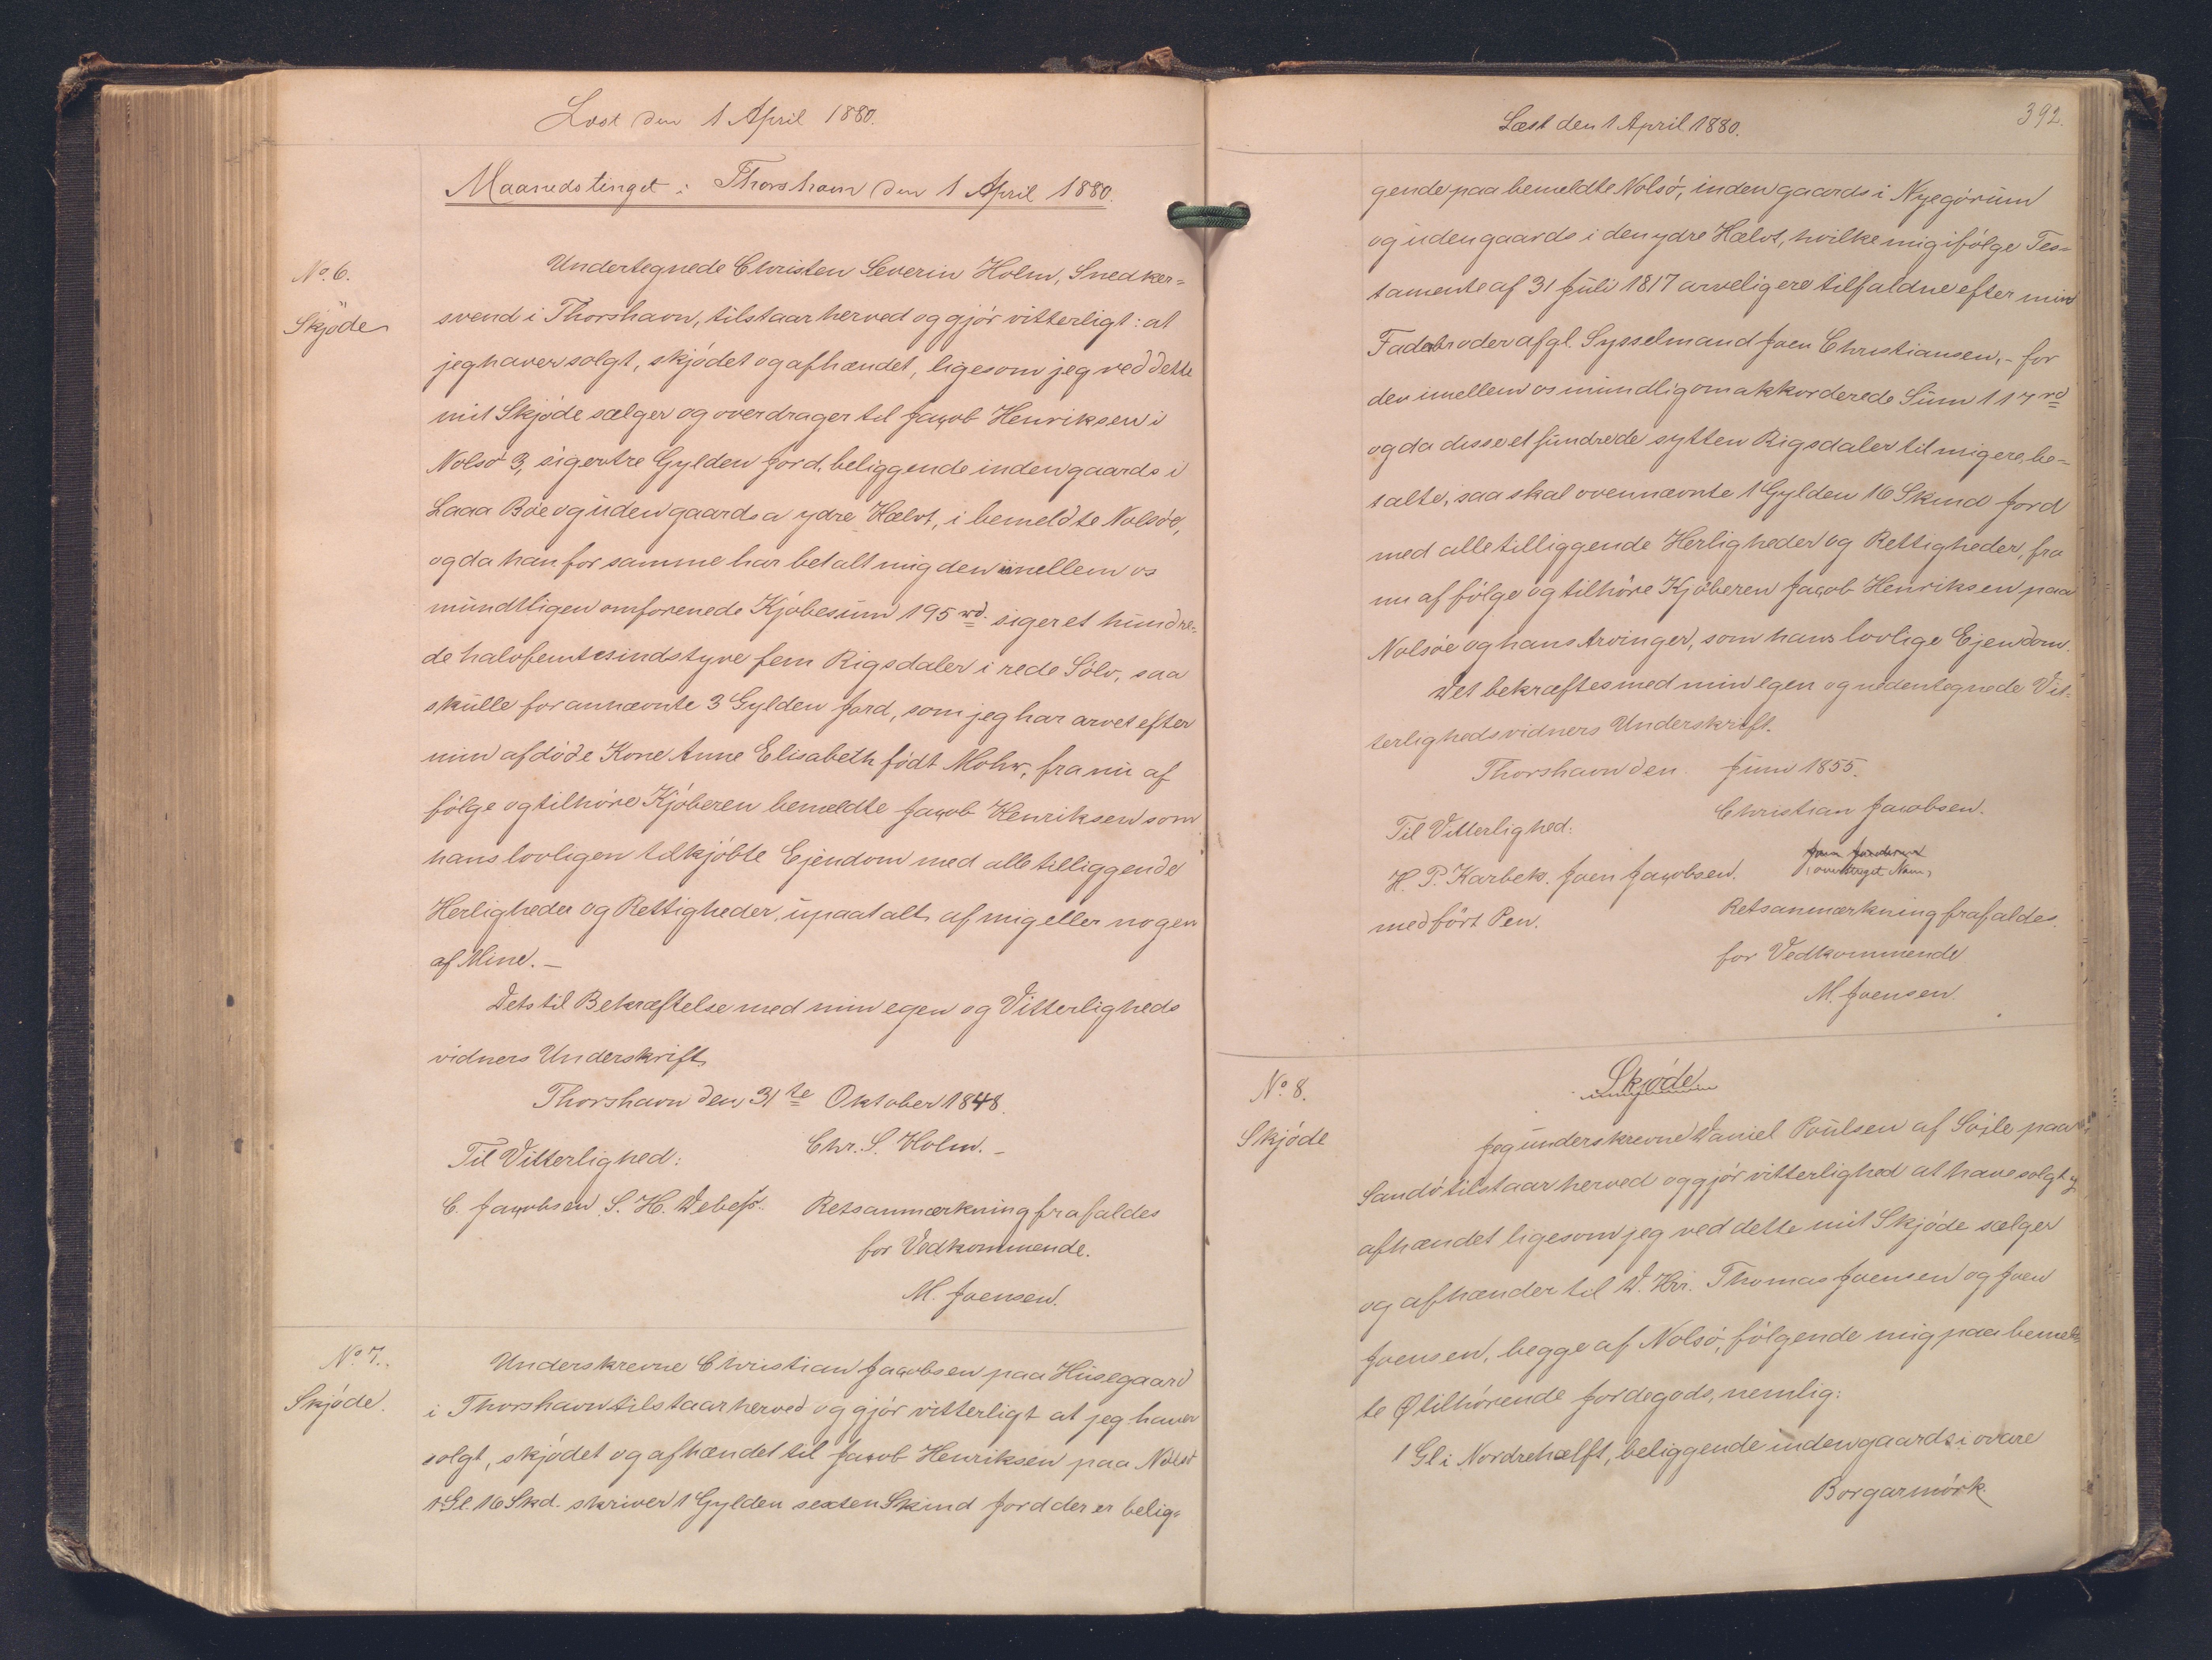 Læst den 1 April 1880.
Maanedstinget i Thorshavn den 1 April 1880.
No. 6.
Skjøde
Undertegnede Christen Severin Holm, Snedker=
svend i Thorshavn, tilstaar herved og gjór vitterligt: at
jeg haver solgt, skjódet og afhændet, ligesom jeg ved dette
mit Skjóde sælger og overdrager til Jacob Henriksen i
Nolsó 3, siger tre Gylden Jord, beliggende indengaards i
Laaa Bóe og udengaards a ydre Hælvt, i bemeldte Nolsóe,
og da han for samme har betalt mig den imellem os
mundtligen omforenede Kjóbesum 195 rd. siger et hundre=
de halvfemtesindstyve fem Rigsdaler i rede Sólv, saa
skulle forannævnte 3 Gylden Jord, som jeg har arvet efter
min afdóde Kone Anne Elisabeth fódt Mohr, fra nu af
fólge og tilhóre Kjóberen bemeldte Jacob Henriksen som
hans lovligen tilkjóbte Ejendom med alle tilliggende
Herligheder og Rettigheder, upaatalt af mig eller nogen
af Mine. –
Dets til Bekræftelse med min egen og Vitterligheds
vidners Underskrift,
Thorshavn den 31te Oktober 1848.
Chr. S. Holm. –
Til Vitterlighed:
C. Jacobsen S. H. Debes.
Retsanmærkning frafaldes
for Vedkommende.
M. Joensen.
No. 7.
Skjóde.
Underskrevne Christian Jacobsen paa Husegaard
i Thorshavn tilstaar herved og gjór vitterligt at jeg haver
solgt, skjódet og afhændet til Jacob Henriksen paa Nolsó
1 Gl. 16 Skd. skriver 1 Gylden sexten Skind Jord der er belig=
Læst den 1 April 1880.
392.
gende paa bemeldte Nolsó, indengaards i Nyegórum
og udengaards i den ydre Hælvt, hvilke mig ifólge Tes=
tamente af 31 Juli 1817 arveligere tilfaldne efter min
Faderbroder afgl. Sysselmand Joen Christiansen, – for
den imellem os mundlig omakkorderede Sum 117 rd
og da disse et hundrede sytten Rigsdaler til mig ere be=
talte, saa skal ovennævnte 1 Gylden 16 Skind Jord
med alle tilliggende Herligheder og Rettigheder, fra
nu af fólge og tilhóre Kjóberen Jacob Henriksen paa
Nolsóe og hans Arvinger, som hans lovlige Ejendom.
Det bekræftes med min egen og nedentegnede Vit=
terlighedsvidners Underskrift.
Thorshavn den Juni 1855.
Christian Jacobsen.
Til Vitterlighed:
(overstreget Navn)
H. P. Karbek. Joen Jacobsen.
med fórt Pen.
Retsanmærkning frafaldes
for Vedkommende
M. Joensen.
No. 8.
Skjóde
Skjóde
Jeg underskrevne Daniel Poulsen af Sójle paa
Sandó tilstaar herved og gjór vitterlighed at have solgt og
afhændet ligesom jeg ved dette mit Skjóde sælger
og afhænder til D. Hrr. Thomas Joensen og Joen
Joensen, begge af Nolsó, fólgende mig paa bemeld
te Ø tilhórende Jordegods, nemlig:
1 Gl i Nordrehælft, beliggende indengaards i ovare
Borgarmórk.